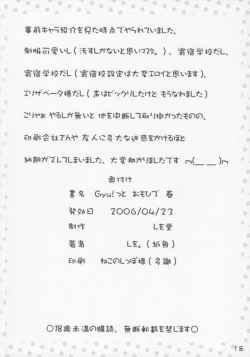 事前キャラ紹介を見た時点でやられていました、
制服可愛いし(汚すしかないと思いマスタ。)、寄宿学校だし
寄宿学校だし(寄宿学校設定は大変エロイと思います)、
エリザベータ様だし(声はビックリしたけど もうなれました)
こりゃぁ やるしか無いと 他を中断して取り掛かったものの、
印刷会社さんや 友人に多大な迷惑をかけるほど
納期がズレてしまいました、大変助かりましたです m(__ __)m
奥付け
書名 Gyu!っと おもひで 春
発効日 2006/04/23
制作 しを堂
著者 しを。(紙魚)
印刷 ねこのしっぽ様(多謝)
18
○18歳未満の購読、無断転載を禁じます○